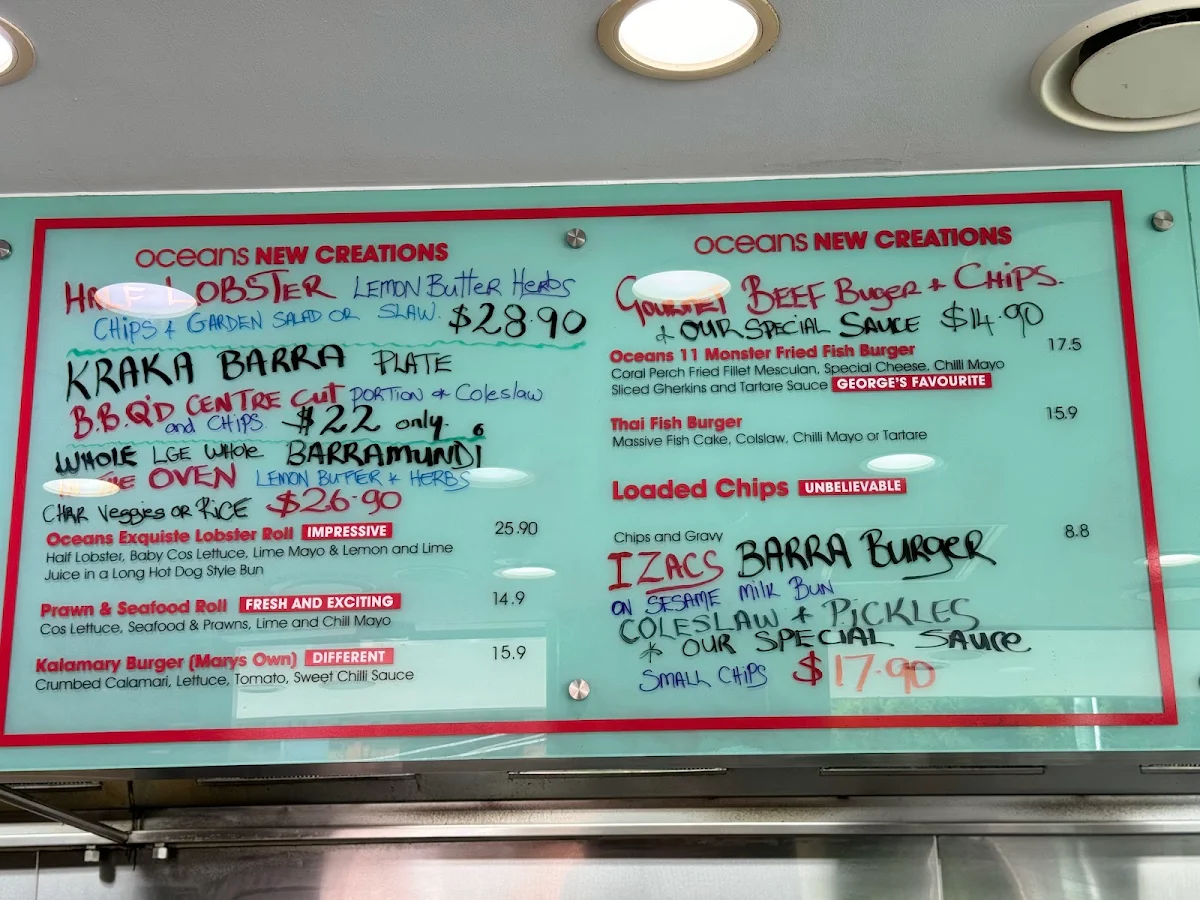 oceans NEW CREATIONS
HALF LOBSTER LEMON Butter Herbs
CHIPS + GARDEN SALAD OR SLAW. $28.90
KRAKA BARRA PLATE
B.B.Q'D CENTRE CUT PORTION & Coleslaw
and CHIPS $22 only.
WHOLE LGE WHOLE BARRAMUNDI
OVEN LEMON BUTTER & HERBS
CHAR Veggies OR RICE $26.90
Oceans Exquiste Lobster Roll IMPRESSIVE 25.90
Half Lobster, Baby Cos Lettuce, Lime Mayo & Lemon and Lime
Juice in a Long Hot Dog Style Bun
Prawn & Seafood Roll FRESH AND EXCITING 14.9
Cos Lettuce, Seafood & Prawns, Lime and Chill Mayo
Kalamary Burger (Marys Own) DIFFERENT 15.9
Crumbed Calamari, Lettuce, Tomato, Sweet Chilli Sauce
oceans NEW CREATIONS
Gourmet BEEF Buger + CHIPS.
& OUR SPECIAL SAUCE $14.90
Oceans 11 Monster Fried Fish Burger 17.5
Coral Perch Fried Fillet Mesculan, Special Cheese, Chilli Mayo
Sliced Gherkins and Tartare Sauce GEORGE'S FAVOURITE
Thai Fish Burger 15.9
Massive Fish Cake, Colslaw, Chilli Mayo or Tartare
Loaded Chips UNBELIEVABLE
Chips and Gravy 8.8
IZACS BARRA BURGER
ON SESAME MILK BUN
COLESLAW + PICKLES
* OUR SPECIAL SAUCE
SMALL CHIPS $17.90